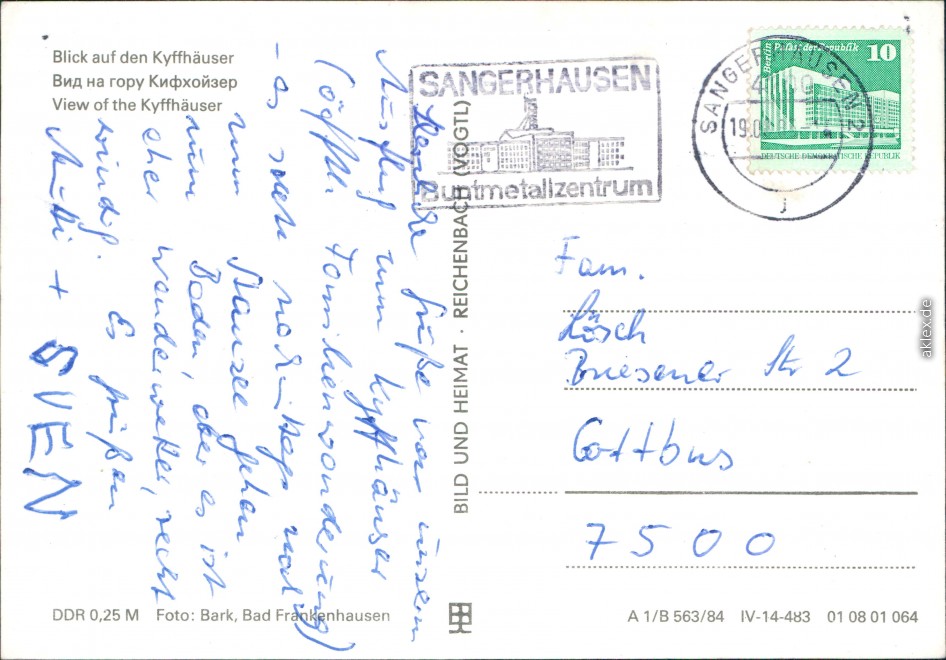 Blick auf den Kyffhäuser
Вид на гору Кифхойзер
View of the Kyffhäuser
SANGERHAUSEN
Buntmetallzentrum
SANGERHAUSEN 2
4700
19.0
J
Berlin, Palast der Republik 10
DEUTSCHE DEMOKRATISCHE REPUBLIK
Grüße von unserm
Ausflug zum Kyffhäuser
(öfftl. Familienwanderung)
- es soll nachmittags noch
zum gehen
zum Baden, aber es ist
eher Wanderwetter, recht
windig. Es grüßen
Mutti + SVEN
BILD UND HEIMAT · REICHENBACH (VOGTL)
Fam.
Lösch
Briesener Str 2
Cottbus
7500
DDR 0,25 M Foto: Bark, Bad Frankenhausen
A 1/B 563/84 IV-14-483 01 08 01 064
aklex.de